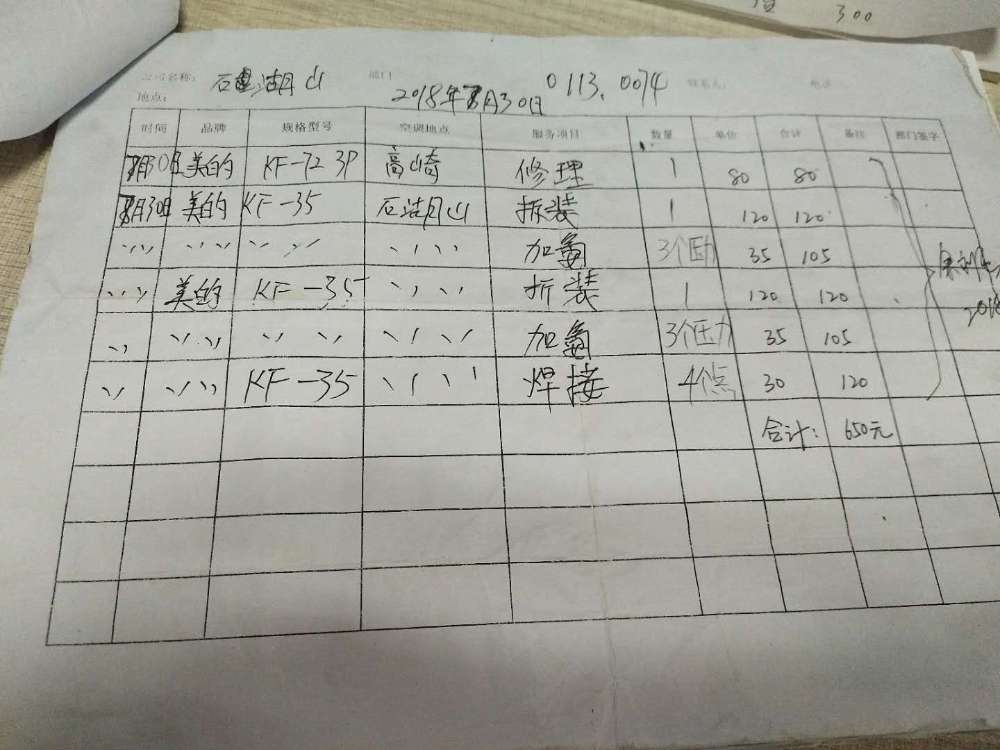 300
公司名称: 石湖月山 部门 0113.0074 联系人: 电话
地点: 2018年8月30日
时间 品牌 规格型号 空调地点 服务项目 数量 单价 合计 备注 部门签字
8月30日 美的 KF-72 3P 高崎 修理 1 80 80
8月30日 美的 KF-35 石湖月山 拆装 1 120 120
〃 〃 〃 〃 加氟 3个压力 35 105
〃 美的 KF-35 〃 拆装 1 120 120
〃 〃 〃 〃 加氟 3个压力 35 105
〃 〃 KF-35 〃 焊接 4个点 30 120
合计: 650元
2018